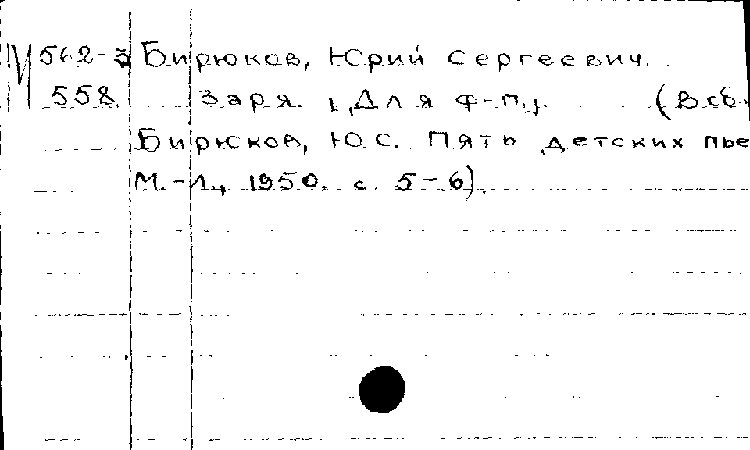 М 562-3 Бирюков, Юрий Сергеевич.
558 Заря. [Для ф-п.]. (В сб.
Бирюков, Ю.С. Пять детских пье
М.-Л., 1950. с. 5-6).